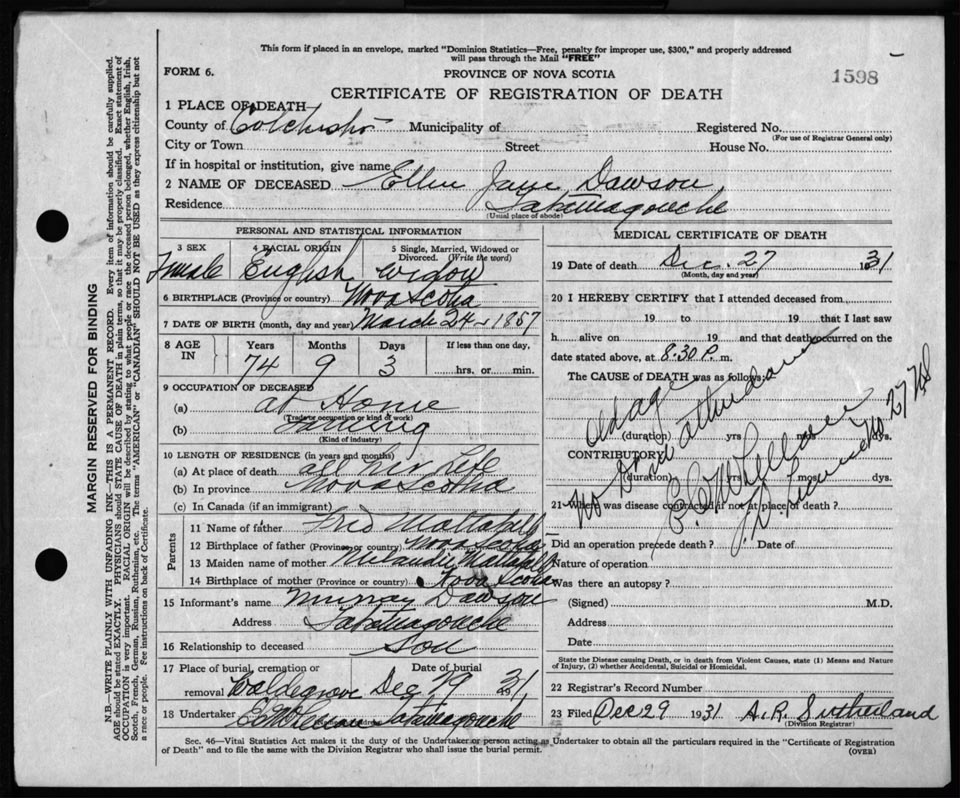 This form if placed in an envelope, marked "Dominion Statistics—Free, penalty for improper use, $300," and properly addressed
will pass through the Mail "FREE"
FORM 6.
PROVINCE OF NOVA SCOTIA
1598
CERTIFICATE OF REGISTRATION OF DEATH
1 PLACE OF DEATH
County of Colchester Municipality of Registered No.
(For use of Registrar General only)
City or Town Street House No.
If in hospital or institution, give name
2 NAME OF DECEASED Ellen Jane Dawson
Residence Tatamagouche
(Usual place of abode)
PERSONAL AND STATISTICAL INFORMATION
3 SEX 4 RACIAL ORIGIN 5 Single, Married, Widowed or Divorced. (Write the word)
Female English widow
6 BIRTHPLACE (Province or country) Nova Scotia
7 DATE OF BIRTH (month, day and year) March 24 - 1857
8 AGE IN Years Months Days If less than one day,
74 9 3 hrs. or min.
9 OCCUPATION OF DECEASED
(a) at Home
(Trade or occupation or kind of work)
(b) Farming
(Kind of industry)
10 LENGTH OF RESIDENCE (in years and months)
(a) At place of death all her life
(b) In province Nova Scotia
(c) In Canada (if an immigrant)
Parents
11 Name of father Fred Mattatall
12 Birthplace of father (Province or country) Nova Scotia
13 Maiden name of mother Mattatall
14 Birthplace of mother (Province or country) Nova Scotia
15 Informant's name Murray Dawson
Address Tatamagouche
16 Relationship to deceased Son
17 Place of burial, cremation or removal Waldegrove Date of burial Dec 29 31
18 Undertaker Tatamagouche
MEDICAL CERTIFICATE OF DEATH
19 Date of death Dec. 27 1931
(Month, day and year)
20 I HEREBY CERTIFY that I attended deceased from
19 to 19 that I last saw
h alive on 19 and that death occurred on the
date stated above, at 8:30 P. m.
The CAUSE of DEATH was as follows:
old age
(duration) yrs mos dys.
No Doctor attendance
CONTRIBUTORY
(duration) yrs mos dys.
21 Where was disease contracted if not at place of death?
Did an operation precede death? Date of
Nature of operation
Was there an autopsy?
(Signed) M.D.
Address
Date
State the Disease causing Death, or in death from Violent Causes, state (1) Means and Nature
of Injury, (2) whether Accidental, Suicidal or Homicidal.
22 Registrar's Record Number
23 Filed Dec 29 1931 A. R. Sutherland
(Division Registrar)
Sec. 46—Vital Statistics Act makes it the duty of the Undertaker or person acting as Undertaker to obtain all the particulars required in the "Certificate of Registration
of Death" and to file the same with the Division Registrar who shall issue the burial permit.
(OVER)
MARGIN RESERVED FOR BINDING
N.B.—WRITE PLAINLY WITH UNFADING INK—THIS IS A PERMANENT RECORD. Every item of information should be carefully supplied.
AGE should be stated EXACTLY. PHYSICIANS should STATE CAUSE OF DEATH in plain terms, so that it may be properly classified. Exact statement of
OCCUPATION is very important. RACIAL ORIGIN will be described by stating to what people or race the deceased person belonged, whether English, Irish,
Scotch, French, German, Russian, Ruthenian, etc. The terms "AMERICAN" or "CANADIAN" SHOULD NOT BE USED as they express citizenship but not
a race or people. Fee instructions on back of Certificate.